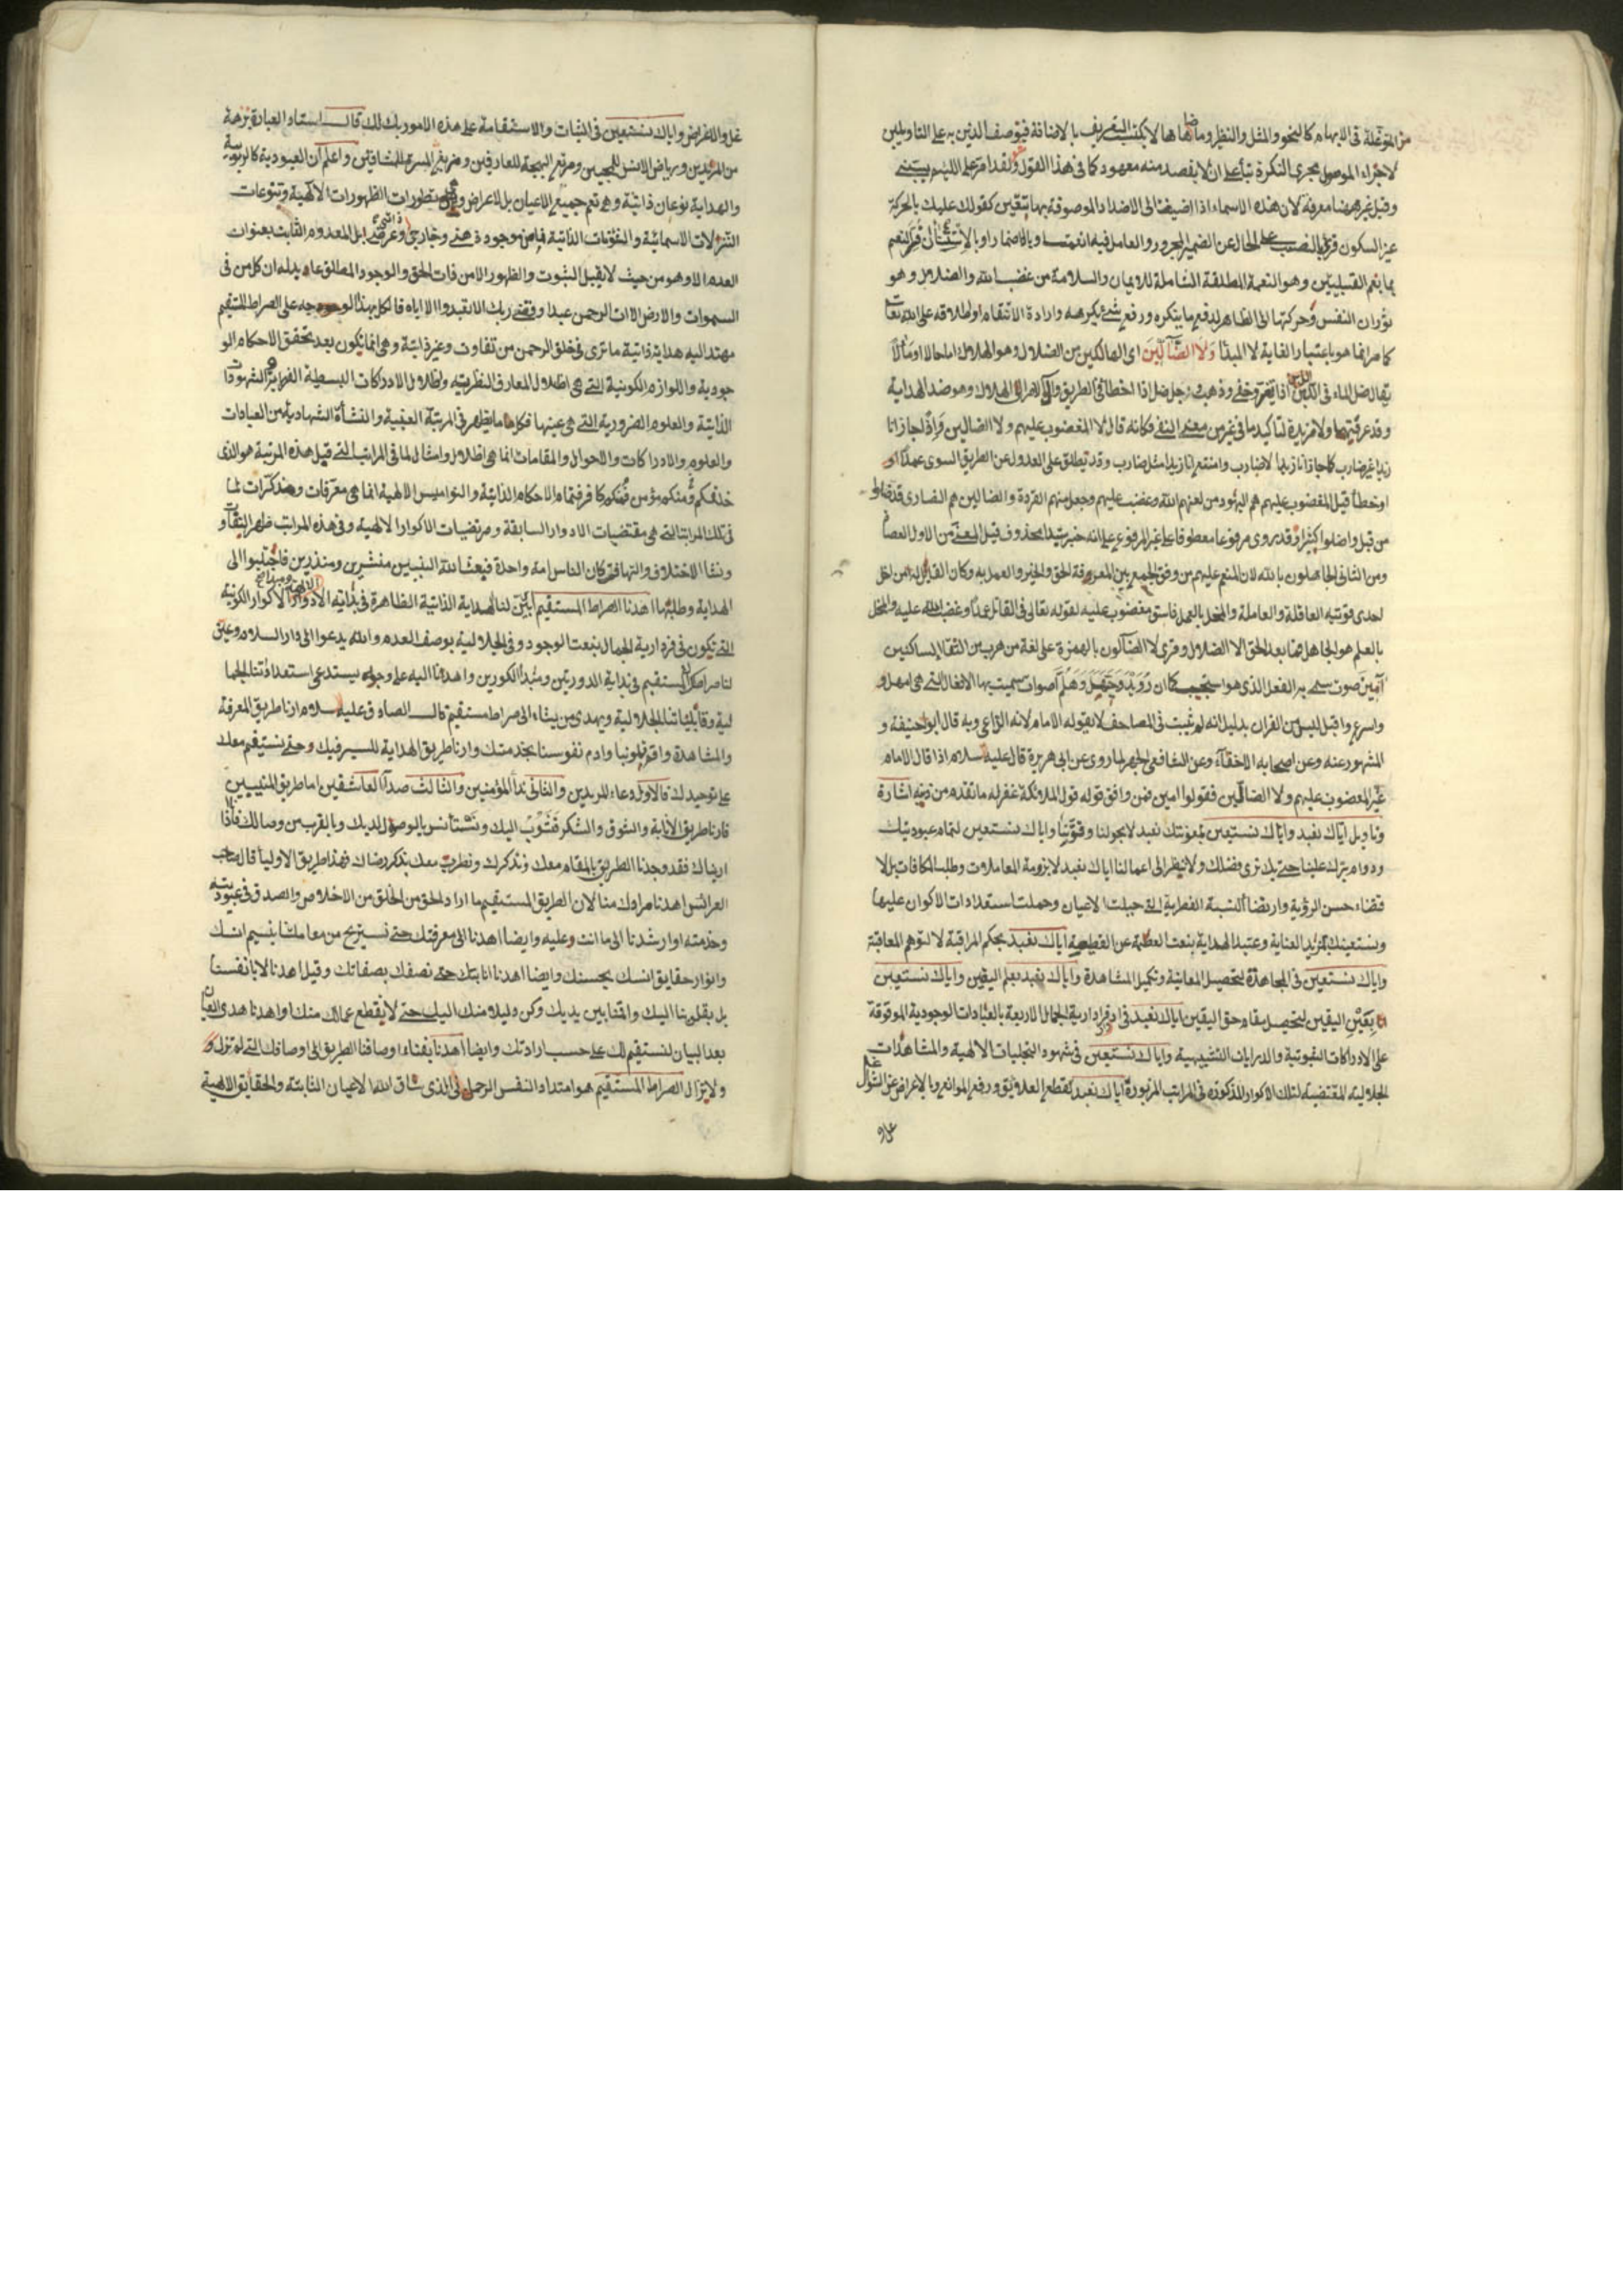 من المتوغلة في الابهام كالنحو والمثل والنظير وما ضاهاها لا يكتسب التعريف بالاضافة فتوصف الذين به على التاويلين
لاجراء الموصول مجرى النكرة بناء على ان لا يقصد منه معهود كما في هذا القول ولقد امر على اللئيم يسبني
وقيل غير ههنا معرفة لان هذه الاسماء اذا اضيفت الى الاضداد الموصوفة بها يتعين كقولك عليك بالحركة
غير السكون قرئ بالنصب على الحال عن الضمير المجرور والعامل فيه انعمت وباضمار او بالاستثناء ان فسر النعم
بما يعم القبيلين وهو النعمة المطلقة الشاملة للايمان والسلامة من غضب الله والضلال وهو
ثوران النفس وحركتها الى الظاهر لدفع ما يتكره ورفع شئ يكرهه وارادة الانتقام واطلاقه على الله تعالى
كما مر انما هو باعتبار الغاية لا المبدأ ولا الضالين اى الهالكين من الضلال وهو الهلاك اما حالا او مآلا
يقال ضل الماء في اللبن اذا تغير وخفي وذهب ورجل ضل اذا اخطأ في الطريق والهلاك وهو ضد الهداية
وقد عرفتهما ولا مزيدة لتاكيد ما في غير من معنى النفي فكانه قال لا المغضوب عليهم ولا الضالين قراءة لجاز انا
زيدا غير ضارب كما جاز انا زيدا لا ضارب وامتنع انا زيدا مثل ضارب وقد تطلق على العدول عن الطريق السوى عمدا او
او خطأ قيل المغضوب عليهم هم اليهود من لعنهم الله وغضب عليهم وجعل منهم القردة والضالين هم النصارى قد ضلوا
من قبل واضلوا كثيرا وقد يروى مرفوعا معطوفا على غير المرفوع على انه خبر مبتدا محذوف قيل المعنى من الاول العصاة
ومن الثاني الجاهلون بالله لان المنعم عليهم من وفق الجمع بين المعرفة الحق والخير والعمل به وكان المقابل له من اخل
احدى قوتيه العاقلة والعاملة والمخل بالعمل فاسق مغضوب عليه لقوله تعالى في القاتل عمدا وغضب الله عليه والمخل
بالعلم هو الجاهل فما بعد الحق الا الضلال وقرئ لا الضألون بالهمزة على لغة من هرب من التقاء الساكنين
آمين صوت سمي به الفعل الذي هو استجب كما ان رويد وحيهل وهلم اصوات سميت بها الافعال التى هى امهل و
واسرع واقبل ليس من القران بدليل انه لم يثبت في المصاحف لا يقوله الامام لانه الداعي وبه قال ابو حنيفة و
المشهور عنه وعن اصحابه الاخفاء وعن الشافعي الجهر لما روى عن ابى هريرة قال عليه السلام اذا قال الامام
غير المغضوب عليهم ولا الضالين فقولوا امين فمن وافق قوله قول الملائكة غفر له ما تقدم من ذنبه اشارة
وتاويل اياك نعبد واياك نستعين بمعونتك نعبد لا بحولنا وقوتنا واياك نستعين لتمام عبوديتك
ودوام سترك علينا حتى نرى فضلك ولا ننظر الى اعمالنا اياك نعبد لا برؤية المعاملات وطلب المكافات بل لا
قتضاء حسن الرؤية وارتضاء النسبة الفطرية التى جبلت الاعيان وحملت استعدادات الاكوان عليها
ونستعينك بمزيد العناية وعتبة الهداية بنعت العظمة عن القطيعة اياك نعبد بحكم المراقبة لا لتوهم المعاقبة
واياك نستعين في المجاهدة لتحصيل المعاينة وتكميل المشاهدة واياك نعبد بعلم اليقين واياك نستعين
بعين اليقين لتحصيل مقام حق اليقين اياك نعبد في ادوار ادارية الجمال الاربعة بالعبادات الوجودية الموقوفة
على الادراكات الثبوتية والدرايات التشبيهية واياك نستعين في شهود التجليات الالهية والمشاهدات
الجلالية المقتضية لتلك الاكوار المذكورة في المراتب المزبورة اياك نعبد كقطع العلائق ورفع الموانع وبالاعراض عن
عل و
عل والاغراض واياك نستعين في الثبات والاستقامة على هذه الامور بك لك قال استاد العبادة نزهة
من المريدين ورياض الانس للمحبين ومرتع البهجة للعارفين ومربع المسرة للمشتاقين واعلم ان العبودية كالربوبية
والهداية نوعان ذاتية وهى تعم جميع الاعيان بل الاعراض تطورات الظهورات الالهية وتنوعات
التنزلات الاسمائية والشؤنات الذاتية فما من موجود ذهني وخارجي ذاتي وعرضى بل المعدوم الثابت بعنوان
العدم الا وهو من حيث لا يقبل الثبوت والظهور الا من ذات الحق والوجود المطلق عابد له ان كل من في
السموات والارض الا اتى الرحمن عبدا وقضى ربك الا تعبدوا الا اياه فالكل بهذا الوجه على الصراط المستقيم
مهتد اليه هداية ذاتية ما ترى في خلق الرحمن من تفاوت وغير ذاتية وهى انما تكون بعد تحقق الاحكام الو
جودية واللوازم الكونية التى هى اظلال المعارف النظرية وظلال الادراكات البسيطة الشهودات
الذاتية والعلوم الضرورية التى هى عينها فكل ما يظهر في المرتبة العينية والنشأة الشهادية من العبادات
والعلوم والادراكات والاحوال والمقامات انما هى اظلال وامثال لما في المراتب التى قبل هذه المرتبة هو الذى
خلقكم فمنكم مؤمن فمنكم كافر فتمام الاحكام الذاتية والنواميس الالهية انما هى معرفات ومذكرات لما
في تلك المراتب التى هى مقتضيات الادوار السابقة ومرتضيات الاكوار الالهية وفى هذه المراتب ظهر التفاوت
ونشا الاختلاف والتهافت كان الناس امة واحدة فبعث الله النبيين مبشرين ومنذرين فاحتاجوا الى
الهداية وطلبها اهدنا الصراط المستقيم بين لنا الهداية الذاتية الظاهرة في بداية الادوار الالهية والاكوار الكونية
التى تكون في فردارية الجمال بنعت الوجود وفى الجلالية بوصف العدم والله يدعوا الى دار السلام وعين
لنا صراط المستقيم في بداية الدورتين ومبدأ الكورين واهدنا اليه على وجه يستدعى استعداداتنا الجما
لية وقابلياتنا الجلالية ويهدى من يشاء الى صراط مستقيم قال الصادق عليه السلام ارنا طريق المعرفة
والمشاهدة واقم قلوبنا وادم نفوسنا بخدمتك وارنا طريق الهداية للسير فيك وحتى نستقيم معك
على توحيدك فالاول دعاء المريدين والثانى نداء المؤمنين والثالث صداء العاشقين اما طريق المنيبين
فارنا طريق الانابة والشوق والشكر فنتوب اليك ونستأنس بالوصول لديك وبالقرب من وصالك فاذا
اريناك فقد وجدنا الطريق بالمقام معك ونذكرك ونطرب معك بذكر رضاك فهذا طريق الاوليا قال صاحب
العرائس اهدنا مرادك منا لان الطريق المستقيم ما اراد الحق من الخلق من الاخلاص والصدق في عبوديته
وخدمته او ارشدنا الى ما انت وعليه وايضا اهدنا الى معرفتك حتى نستريح من معاملتنا بنسيم انسك
وانوار حقايق انسك بحسنك وايضا اهدنا انابتك حتى نصفك بصفاتك وقيل اهدنا لا بانفسنا
بل بقلوبنا اليك واقمنا بين يديك وكن دليلا منك اليك حتى لا يقطع عمالك منك او اهدنا هدى العيان
بعد البيان لنستقيم لك على حسب ارادتك وايضا اهدنا بفناء اوصافنا الطريق الى اوصافك التى لم تزل و
ولا يزال الصراط المستقيم هو امتداد النفس الرحمانى الذى ساق الله الاعيان الثابتة والحقايق الالهية